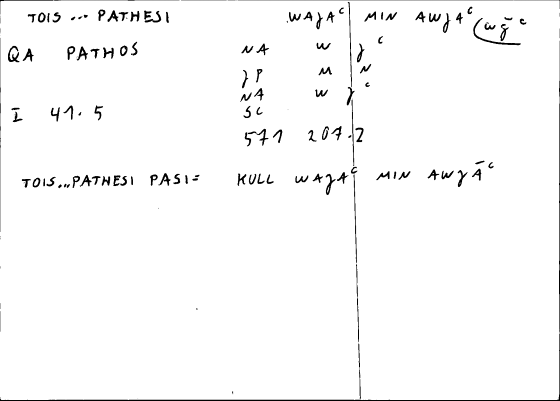 TOIS ... PATHESI WAȝAᶜ MIN AWȝAᶜ (wȝ̄ᶜ
QA PATHOS NA W ȝᶜ
ȝP M N
NA W ȝᶜ
I 41.5 SC
571 207.2
TOIS...PATHESI PASI= KULL WAȝAᶜ MIN AWȝĀᶜ